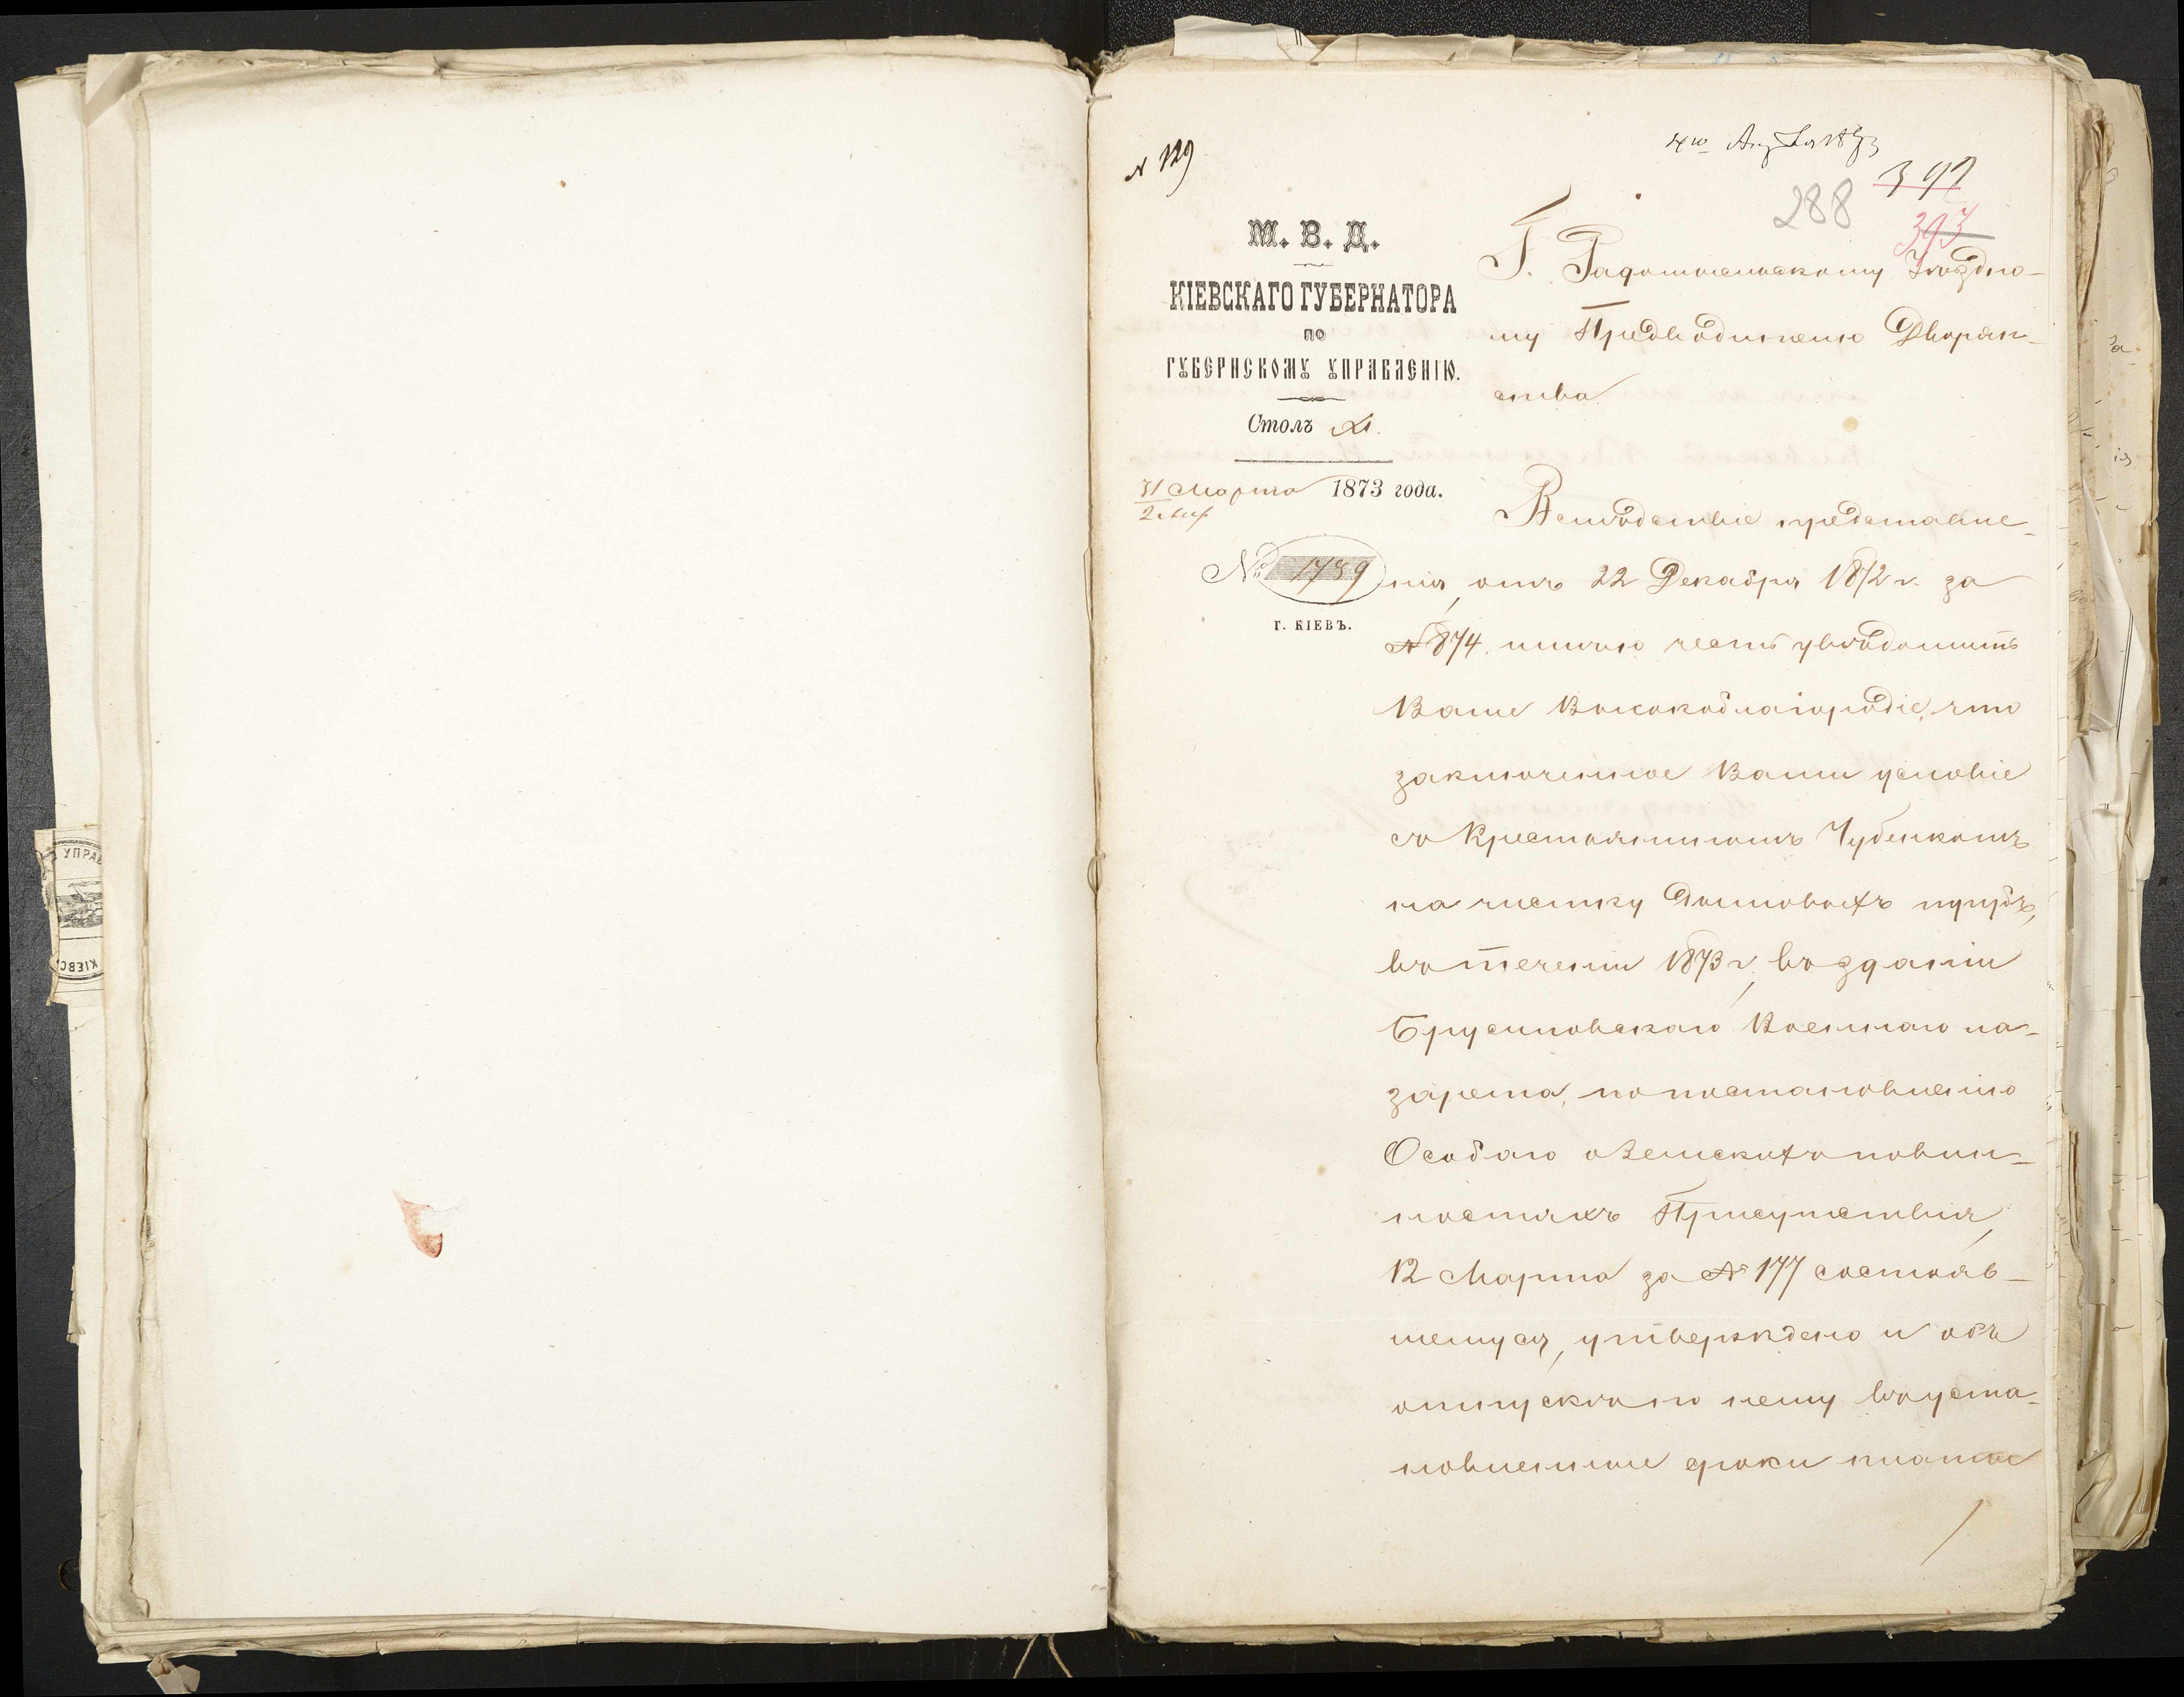 УПРАВ
КІЕВС
N 129
4го Апреля 1873
397
288
393
М. В. Д.
КІЕВСКАГО ГУБЕРНАТОРА
по
ГУБЕРНСКОМУ УПРАВЛЕНІЮ.
Столъ XI.
31 Марта 1873 года.
№ 1759
г. КІЕВЪ.
Г. Радомысльскому Уѣздно-
му Предводителю Дворян-
ства.
Вслѣдствіе представле-
нія, отъ 22 Декабря 1872 г. за
№ 874. имѣю честь увѣдомить
Ваше Высокоблагородіе, что
заключенное Вами условіе
съ Крестьяниномъ Чубенкомъ
на чистку Дымовыхъ трубъ,
въ теченіи 1873 г., въ зданіи
Брусиловскаго Военнаго ла-
зарета, по постановленію
Особаго о Земскихъ повин-
ностяхъ Присутствія,
12 Марта за № 177 состояв-
шемуся, утверждено и объ
отпускѣ по нему въ уста-
новленные сроки платы